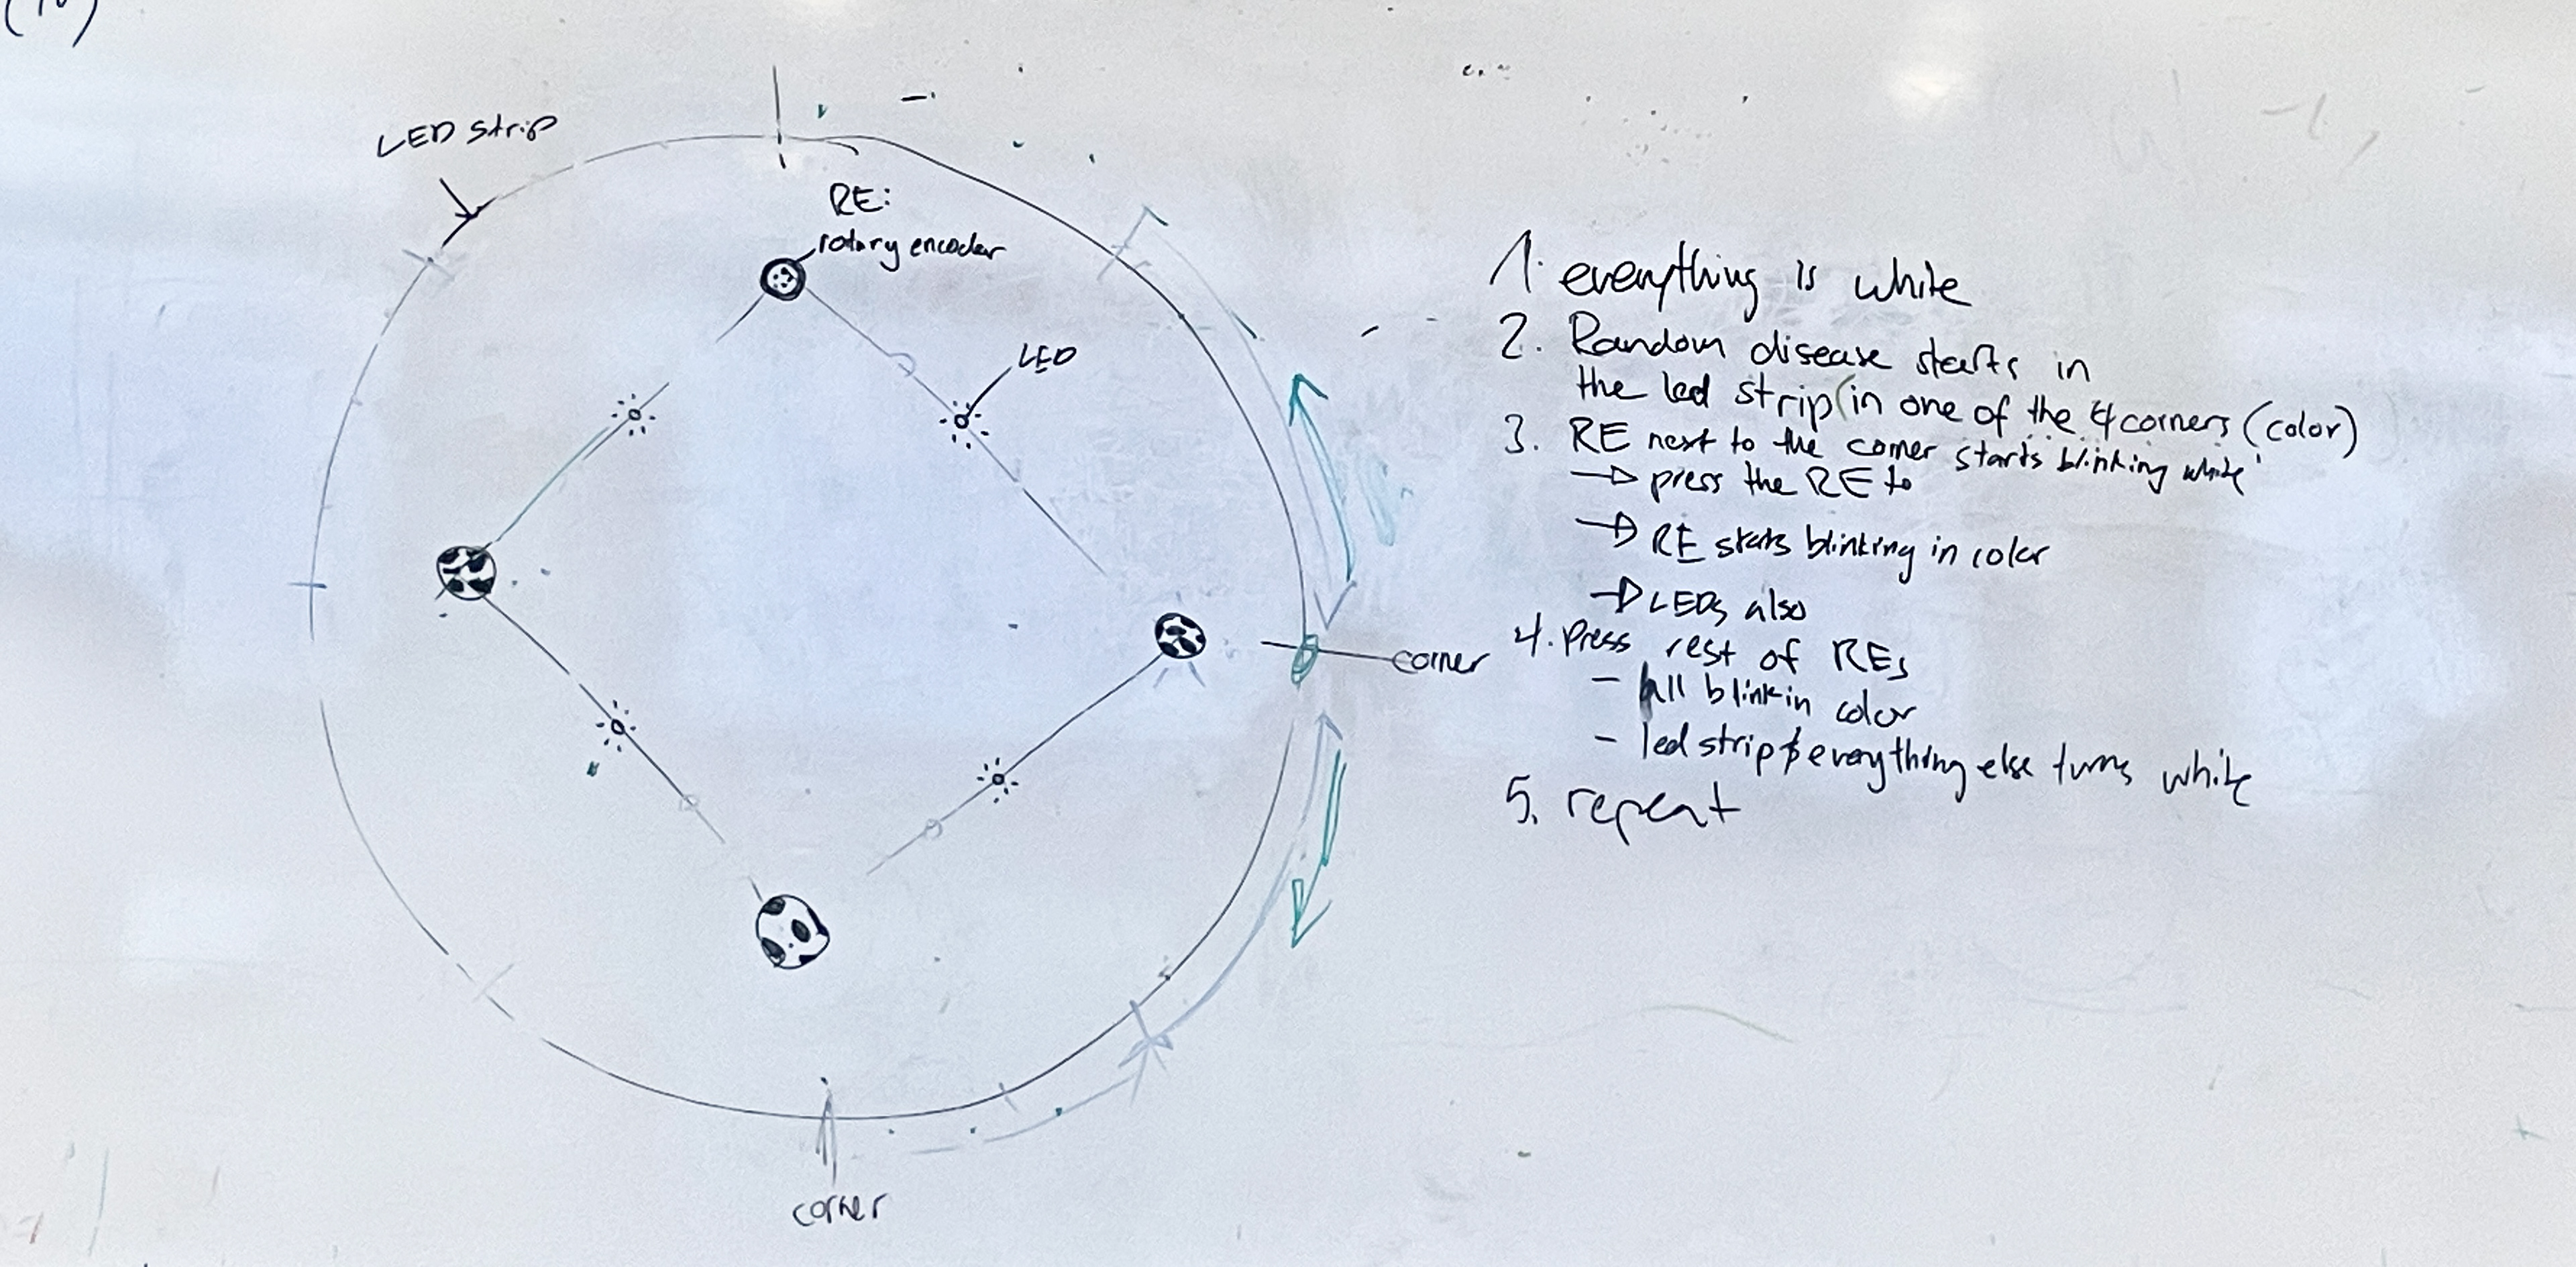 LED strip
RE:
rotary encoder
LED
corner
corner
1. everything is white
2. Random disease starts in
the led strip (in one of the 4 corners (color)
3. RE next to the corner starts blinking white
→ press the RE to
→ RE starts blinking in color
→ LEDs also
4. Press rest of REs
- All blink in color
- led strip & everything else turns white
5. repeat